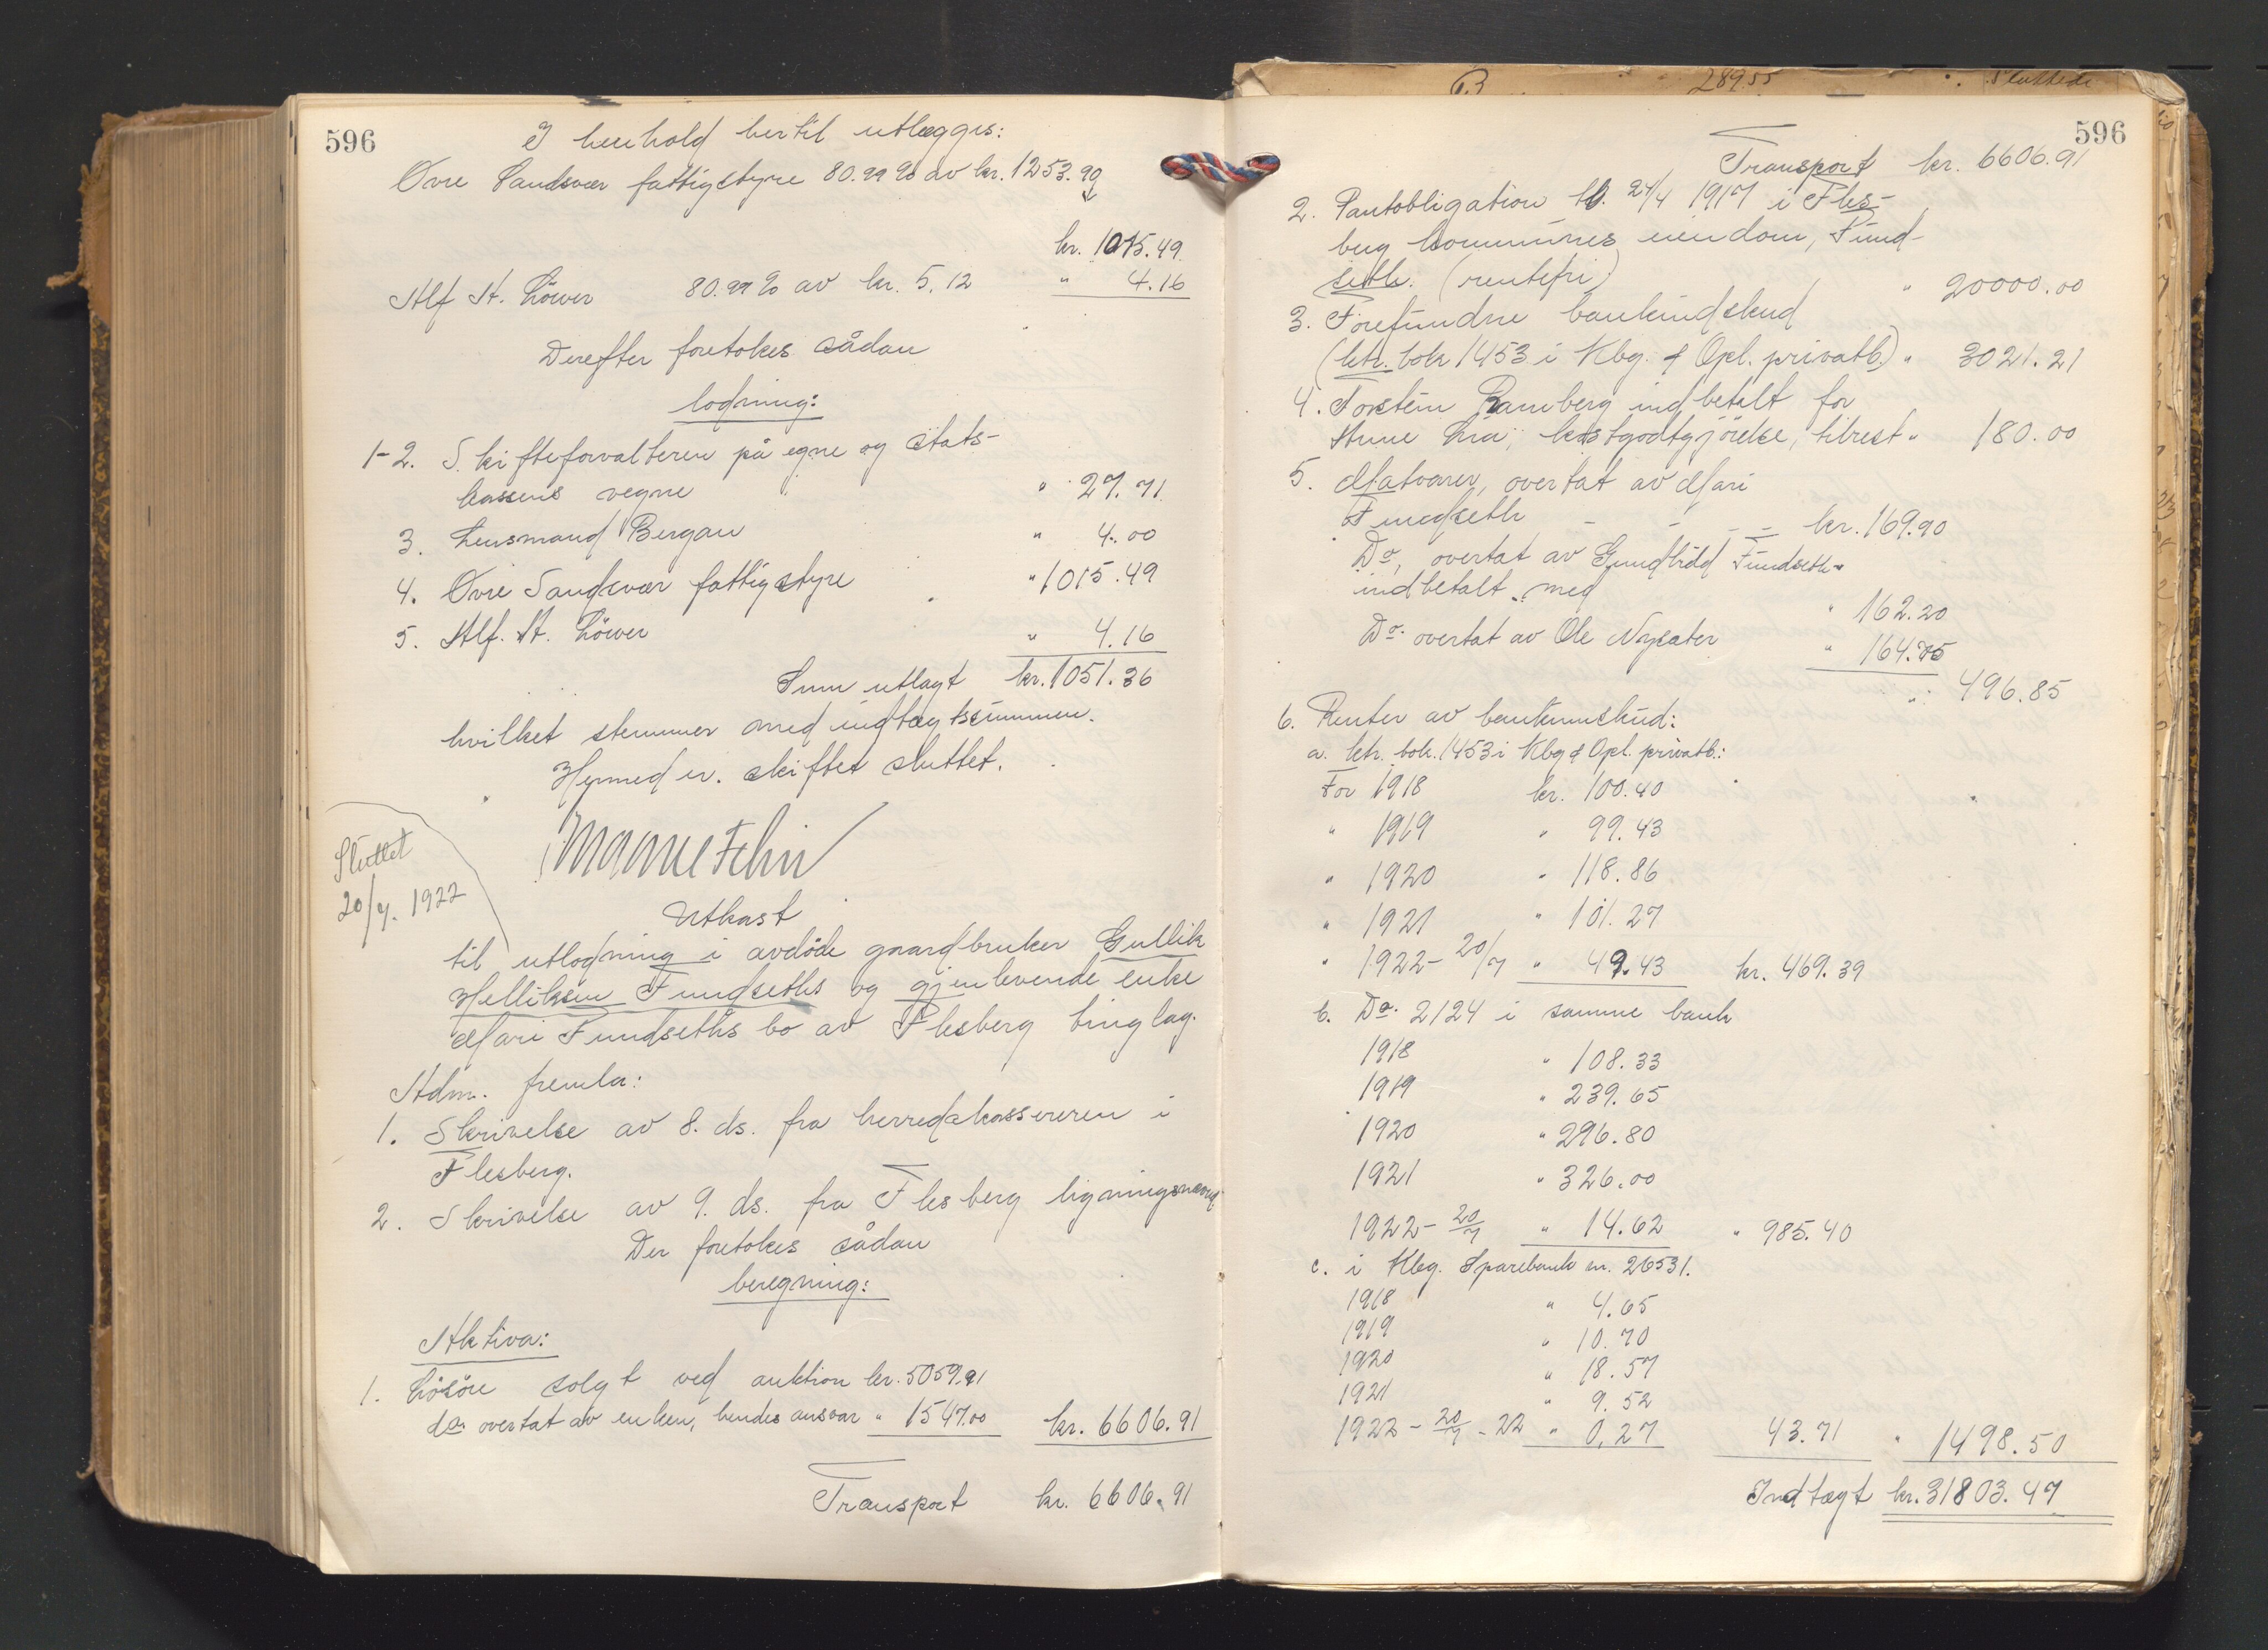 596
I henhold hertil utlægges:
Øvre Sandsvær fattigstyre 80.99 % av kr. 1253.99
kr. 1015.49
Alf A. Löwer 80.99 % av kr. 5.12 " 4.16
Derefter foretokes sådan
lodning:
1-2. Skifteforvalteren på egne og stats-
kassens vegne " 27.71
3. Lensmand Bergan " 4.00
4. Øvre Sandsvær fattigstyre " 1015.49
5. Alf. A. Löwer " 4.16
Sum utlagt kr. 1051.36
hvilket stemmer med indtægtssummen.
Hermed er skiftet sluttet.
Sluttet
20/7. 1922
Utkast
til utlodning i avdöde gaardbruker Gullik
Helliksen Fundseths og gjenlevende enke
Mari Fundseths bo av Flesberg tinglag.
Adm. fremla:
1. Skrivelse av 8. ds. fra herredskassereren i
Flesberg.
2. Skrivelse av 9. ds. fra Flesberg ligningsnævnd
Der foretokes sådan
beregning:
Aktiva:
1. Lösöre solgt ved auktion kr. 5059.91
do. overtat av enken, hendes ansvar " 1547.00 kr. 6606.91
Transport kr. 6606.91
B 28955 Sluttede
596
Transport kr. 6606.91
2. Pantobligation tl. 24/4 1917 i Fles-
berg kommunes eiendom, Fund-
seth. (rentefri) " 20000.00
3. Forefundne bankindskud
(ktr. bok 1453 i Kbg. & Opl. privatb.) " 3021.21
4. Torstein Ramberg indbetalt for
Anne Lia, kostgodtgjörelse, tilrest " 180.00
5. Matvarer, overtat av Mari
Fundseth - - - - kr. 169.90
Do, overtat av Gundhild Fundseth
indbetalt med " 162.20
Do. overtat av Ole Nysæter " 164.75
" 496.85
6. Renter av bankinnskud:
a. ktr. bok. 1453 i Kbg & Opl. privatb.:
For 1918 kr. 100.40
" 1919 " 99.43
" 1920 " 118.86
" 1921 " 101.27
" 1922 - 20/7 " 49.43 kr. 469.39
b. Do. 2124 i samme bank
1918 " 108.33
1919 " 239.65
1920 " 296.80
1921 " 326.00
1922 - 20/7 " 14.62 " 985.40
c. i Kbg. Sparebank nr. 26531.
1918 " 4.65
1919 " 10.70
1920 " 18.57
1921 " 9.52
1922 - 20/7 - 22 " 0,27 43.71 " 1498.50
Indtægt kr. 31803.47